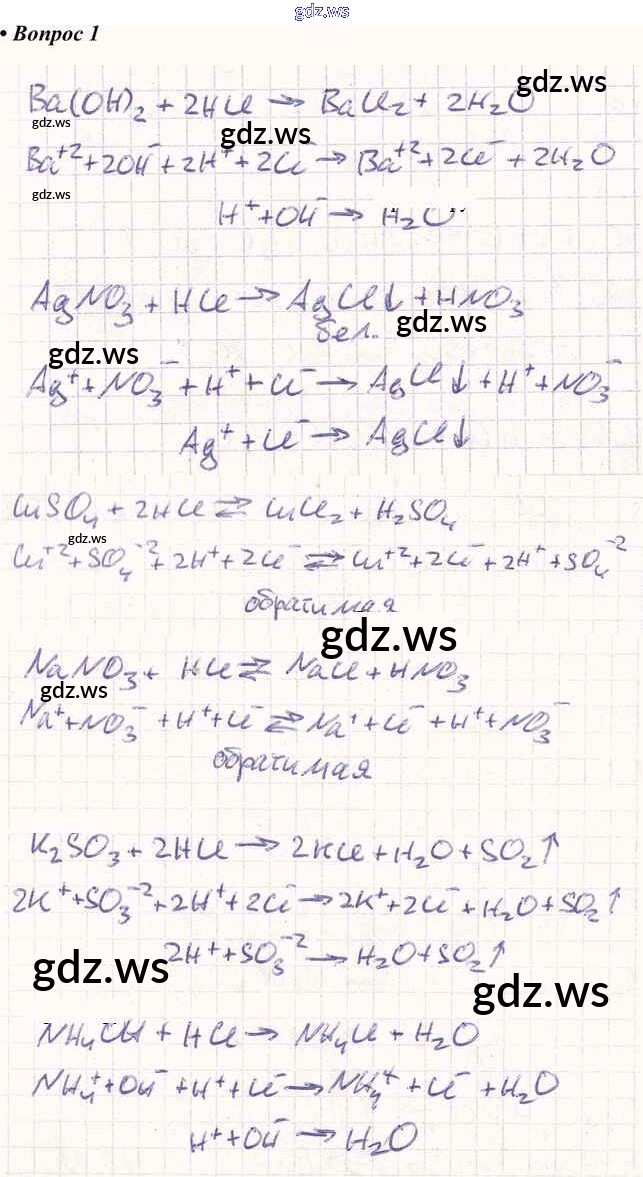 gdz.ws
• Вопрос 1
gdz.ws
Ba(OH)₂ + 2HCl → BaCl₂ + 2H₂O
gdz.ws
gdz.ws
Ba⁺² + 2OH⁻ + 2H⁺ + 2Cl⁻ → Ba⁺² + 2Cl⁻ + 2H₂O
gdz.ws
H⁺ + OH⁻ → H₂O
AgNO₃ + HCl → AgCl↓ + HNO₃
бел.
gdz.ws
gdz.ws
Ag⁺ + NO₃⁻ + H⁺ + Cl⁻ → AgCl↓ + H⁺ + NO₃⁻
Ag⁺ + Cl⁻ → AgCl↓
CuSO₄ + 2HCl ⇄ CuCl₂ + H₂SO₄
gdz.ws
Cu⁺² + SO₄⁻² + 2H⁺ + 2Cl⁻ ⇄ Cu⁺² + 2Cl⁻ + 2H⁺ + SO₄⁻²
обратимая
gdz.ws
NaNO₃ + HCl ⇄ NaCl + HNO₃
gdz.ws
Na⁺ + NO₃⁻ + H⁺ + Cl⁻ ⇄ Na⁺ + Cl⁻ + H⁺ + NO₃⁻
обратимая
K₂SO₃ + 2HCl → 2KCl + H₂O + SO₂↑
2K⁺ + SO₃⁻² + 2H⁺ + 2Cl⁻ → 2K⁺ + 2Cl⁻ + H₂O + SO₂↑
2H⁺ + SO₃⁻² → H₂O + SO₂↑
gdz.ws
gdz.ws
NH₄OH + HCl → NH₄Cl + H₂O
NH₄⁺ + OH⁻ + H⁺ + Cl⁻ → NH₄⁺ + Cl⁻ + H₂O
H⁺ + OH⁻ → H₂O